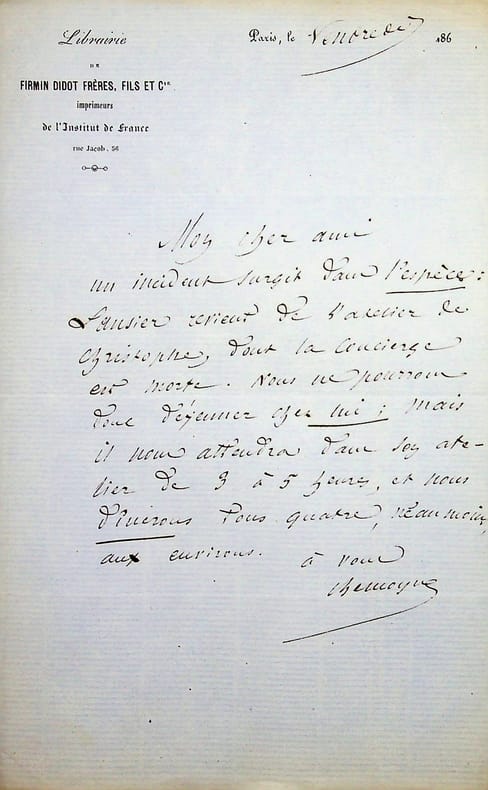 Librairie
DE
FIRMIN DIDOT FRÈRES, FILS ET Cie
imprimeurs
de l'Institut de France
rue Jacob, 56
Paris, le Vendredi 186
Mon cher ami
un incident surgit dans l'espèce :
revient de l'atelier de
Christophe, dont la Concierge
est morte. Nous ne pourrons
donc déjeuner chez lui ; mais
il nous attendra dans son ate-
lier de 3 à 5 heures, et nous
dînerons tous quatre, néanmoins,
aux environs.
à vous